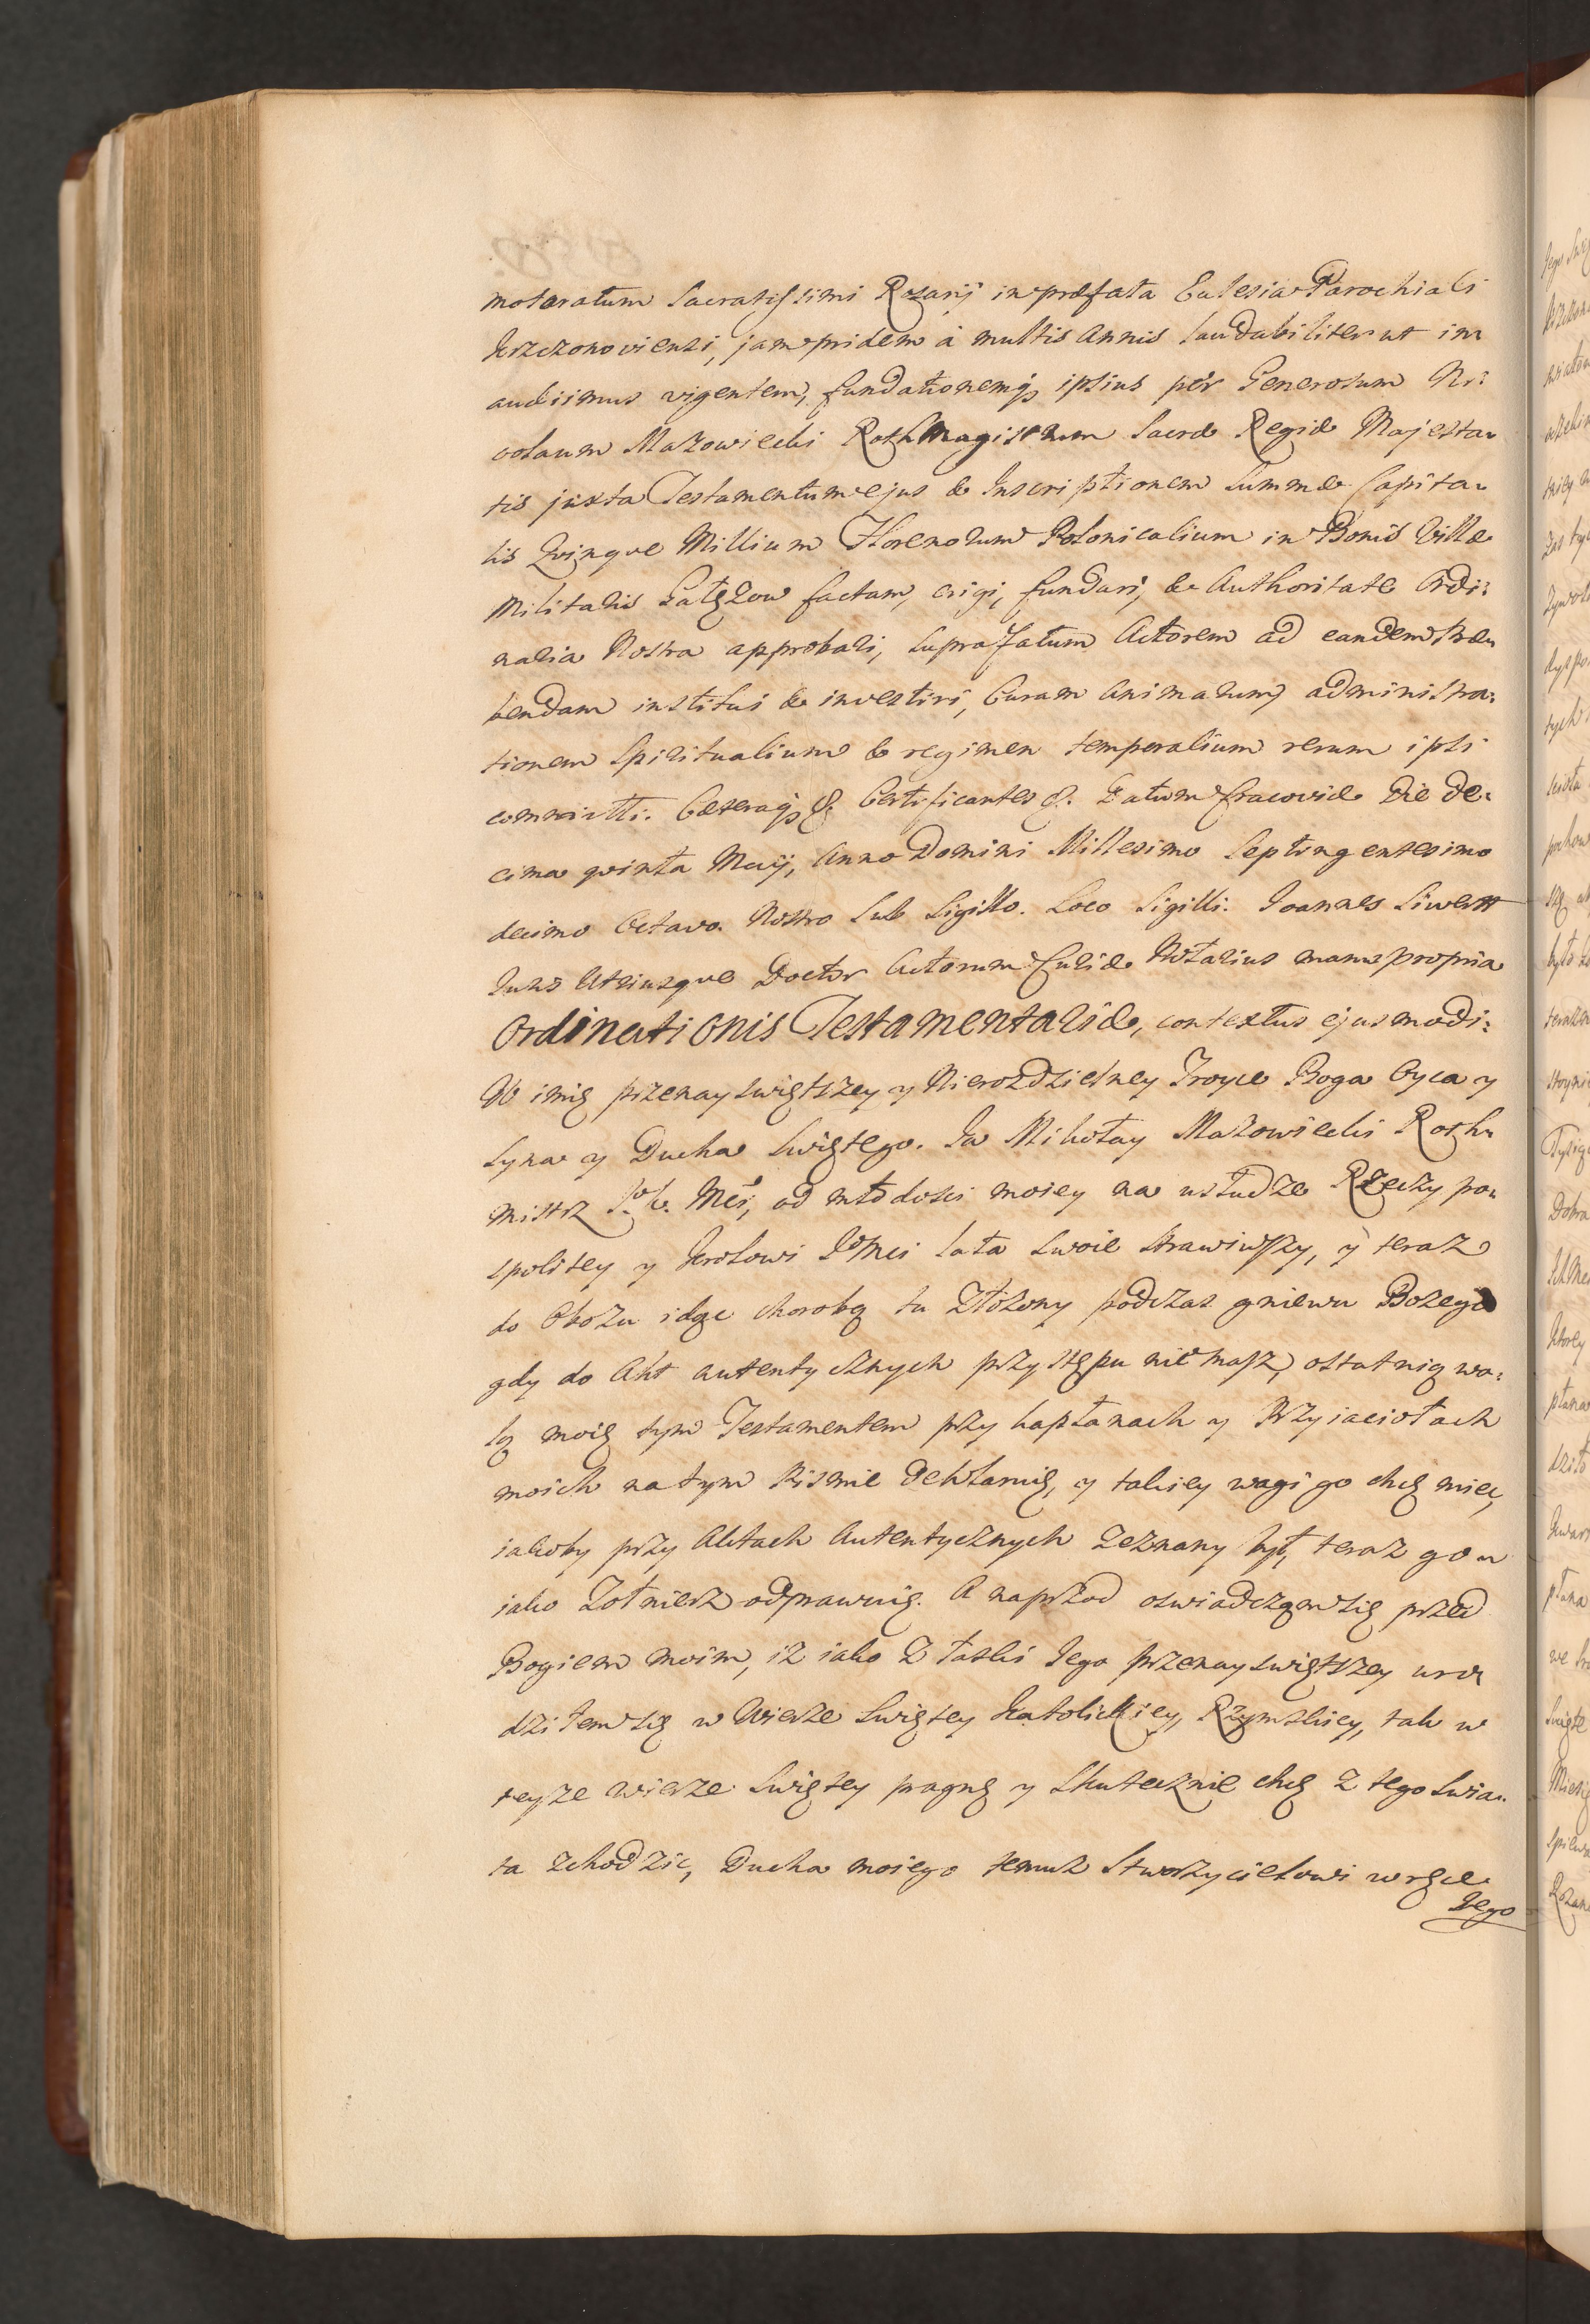 motaratum Sacratissimi Rozarij in præfata Eclesia Parochiali
Krzczonoviensi, jam pridem à multis annis laudabiliter ut in
audiimus vigentem, fundationemq; ipsius per Generosum Ni:
colaum Mazowiecki Rothmagistrum Sacræ Regiæ Majesta=
tis juxta Testamentum ejus & Inscriptionem Summæ Capita=
lis Qvinqve Millium Florenorum Polonicalium in Bonis Villæ
Militaris Gałęzow factam, erigi, fundari, & Authoritate Ordi:
naria Nostra approbari, suprafatum Actorem ad eandem Præ=
bendam institui & investiri, Curam animarum, administra:
tionem Spiritualium & regimen temporalium rerum ipsi
committi. Cæteraq; &. Certificantes &. Datum Cracoviæ Die de:
cima qvinta Maij, Anno Domini Millesimo Septingentesimo
decimo Octavo. Nostro Sub Sigillo. Loco Sigilli. Joannes Siwertt
Juris Utriusqve Doctor Actorum Curiæ Notarius manu propria
Ordinationis Testamentariæ, contextus ejusmodi:
W imię przenayswiętszey y Nierozdzielney Troyce Boga Oyca y
Syna y Ducha Swiętego. Ja Mikołay Mazowiecki Roth=
mistrz Mći, od młodosci moiey na usłudze Rzeczy po=
spolitey y Krolowi JoMci lata swoie strawiwszy, y teraz
do Obozu idąc chorobą tu złożony podczas gniewu Bozego
gdy do Akt autentycznych przystępu nie masz, ostatnią wo:
lą moię tym Testamentem przy kapłanach y Przyiaciołach
moich na tym Pismie deklaruię, y takiey wagi go chcę miec,
iakoby przy Aktach Autentycznych zeznany był, teraz go
iako Zołnierz odprawuię. A naprzod oswiadczam się przed
Bogiem moim, iz iako z łaski Jego przenayswiętszey uro=
dziłem się w Wierze Swiętey Katolickiey, Rzymskiey, tak w
teyze wierze Swiętey pragnę y Skutecznie chcę z tego Swia=
ta zchodzic, Ducha moiego temuz Stworzycielowi w ręce
Jego